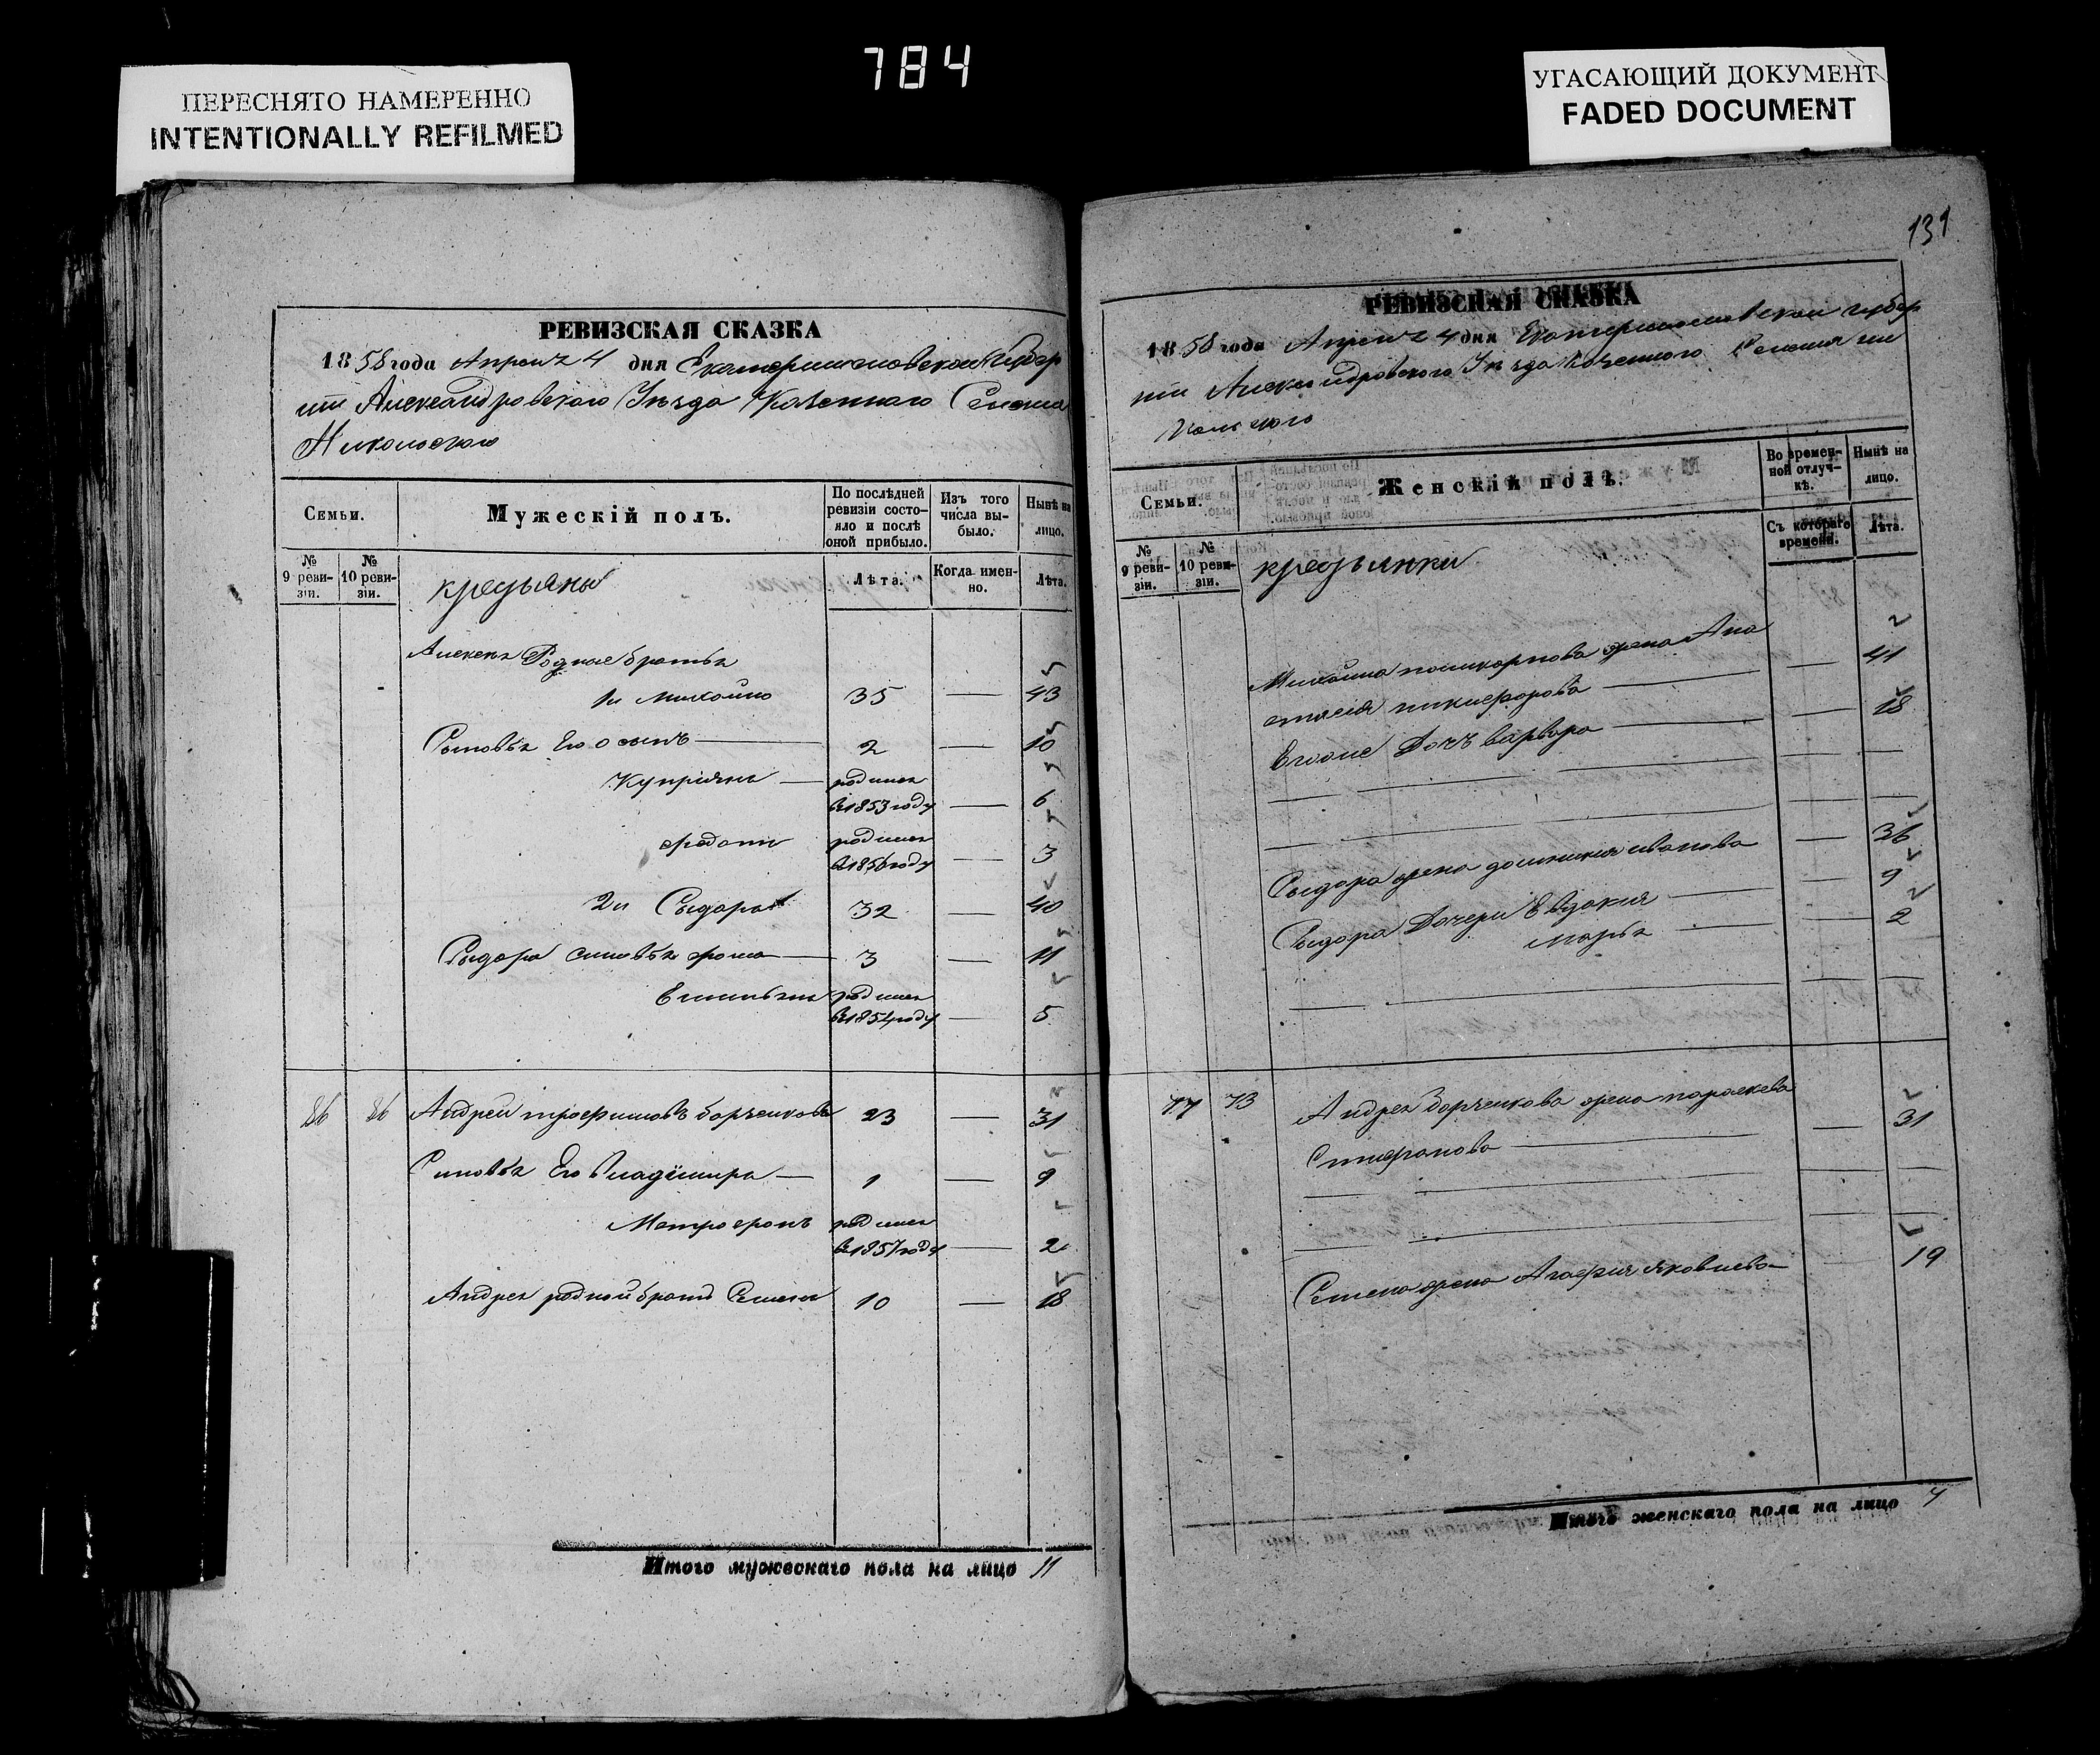 784
ПЕРЕСНЯТО НАМЕРЕННО
INTENTIONALLY REFILMED
УГАСАЮЩИЙ ДОКУМЕНТ
FADED DOCUMENT
РЕВИЗСКАЯ СКАЗКА
1858 года Апреля 4 дня Екатеринославской Губер
нии Александровского Уезда Казенного Селения
Никольского
Семьи.
Мужескій полъ.
По послѣдней ревизіи состояло и послѣ оной прибыло.
Изъ того числа выбыло.
Нынѣ на лицо.
№ 9 ревизіи.
№ 10 ревизіи.
крестьяны
Лѣта.
Когда именно.
Лѣта.
Алексея Родные братья
1й Михайло 35 — 43
Сыновья Его 2 — 10
Куприянъ — родился в 1853 году — 6
родился в 1856 году — 3
2й Сыдоръ 32 — 40
Сыдора сыновья — 3 — 11
Емельянъ родился в 1854 году — 5
86 86 Андрей трофимовъ борченковъ 23 — 31
Сыновья Его Владимиръ — 1 — 9
Митрофанъ родился в 1857 году — 2
Андрея родной братъ Семенъ 10 — 18
Итого мужескаго пола на лицо 11
131
РЕВИЗСКАЯ СКАЗКА
1858 года Апреля 4 дня Екатеринославской губер
нии Александровского Уезда Казенного Селения Ни
кольского
Семьи.
Женскій полъ.
Во временной отлучкѣ.
Нынѣ на лицо.
№ 9 ревизіи.
№ 10 ревизіи.
крестьянки
Съ котораго времени.
Лѣта.
Михайла поликарпова жена Ана
стасия никифорова — — 41
Дочь варвара — — 18
Сыдора жена ивановa — 36
Сыдора Дочери Евдокия — — 9
марья — — 2
77 73 Андрея борченкова жена параскева
Стефанова — — 31
Семена жена Агафия яковлева — 19
Итого женскаго пола на лицо 7